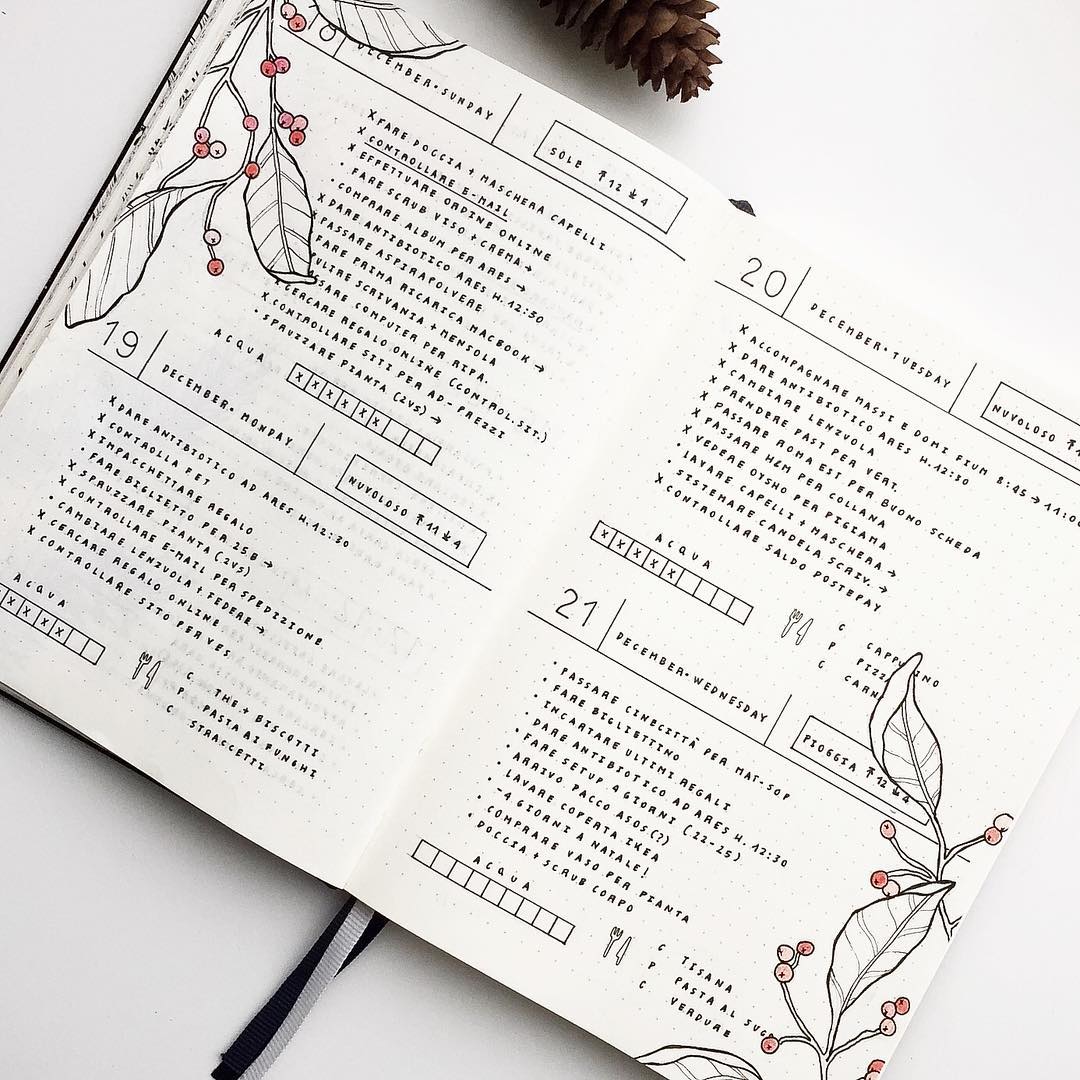 18 DECEMBER • SUNDAY
SOLE ↑12 ↓4
X FARE DOCCIA + MASCHERA CAPELLI
X CONTROLLARE E-MAIL
X EFFETTUARE ORDINE ONLINE
• FARE SCRUB VISO + CREMA →
• COMPRARE ALBUM PER ARES →
X DARE ANTIBIOTICO ARES H.12:30
PASSARE ASPIRAPOLVERE
FARE PRIMA RICARICA MACBOOK →
PULIRE SCRIVANIA + MENSOLA
COMPUTER PER RIPA.
CERCARE REGALO ONLINE (CONTROL.SIT.)
X CONTROLLARE SITI PER AD-PREZZI
• SPRUZZARE PIANTA (2VS) →
ACQUA
X X X X X X
19 DECEMBER • MONDAY
NUVOLOSO ↑11 ↓4
X DARE ANTIBIOTICO AD ARES H.12:30
X CONTROLLA PET
X IMPACCHETTARE REGALO
• FARE BIGLIETTO PER 25B →
X SPRUZZARE PIANTA (2VS)
• CONTROLLARE E-MAIL PER SPEDIZIONE
• CAMBIARE LENZUOLA + FEDERE →
X CERCARE REGALO ONLINE
X CONTROLLARE SITO PER VES.
ACQUA
X X X X
C THE + BISCOTTI
P PASTA AI FUNGHI
C STRACCETTI
20 DECEMBER • TUESDAY
NUVOLOSO ↑1
X ACCOMPAGNARE MASSI E DOMI FIUM 8:45 → 11:00
X DARE ANTIBIOTICO ARES H.12:30
X CAMBIARE LENZUOLA
X PRENDERE PAST PER VERI
X PASSARE ROMA EST PER BUONO SCHEDA
X PASSARE H&M PER COLLANA
X VEDERE OYSHO PER PIGIAMA
• LAVARE CAPELLI + MASCHERA →
• SISTEMARE CANDELA SCRIV. →
X CONTROLLARE SALDO POSTEPAY
ACQUA
X X X X X
C CAPPUCCINO
P PIZZA
C CARNE
21 DECEMBER • WEDNESDAY
PIOGGIA ↑12 ↓4
• PASSARE CINECITTÀ PER MAT-SOP
• FARE BIGLIETTINO
• INCARTARE ULTIMI REGALI
• DARE ANTIBIOTICO AD ARES H.12:30
• FARE SETUP 4 GIORNI (22-25)
• ARRIVO PACCO ASOS (?)
• LAVARE COPERTA IKEA
• -4 GIORNI A NATALE!
• COMPRARE VASO PER PIANTA
• DOCCIA + SCRUB CORPO
ACQUA
C TISANA
P PASTA AL SUGO
C VERDURE